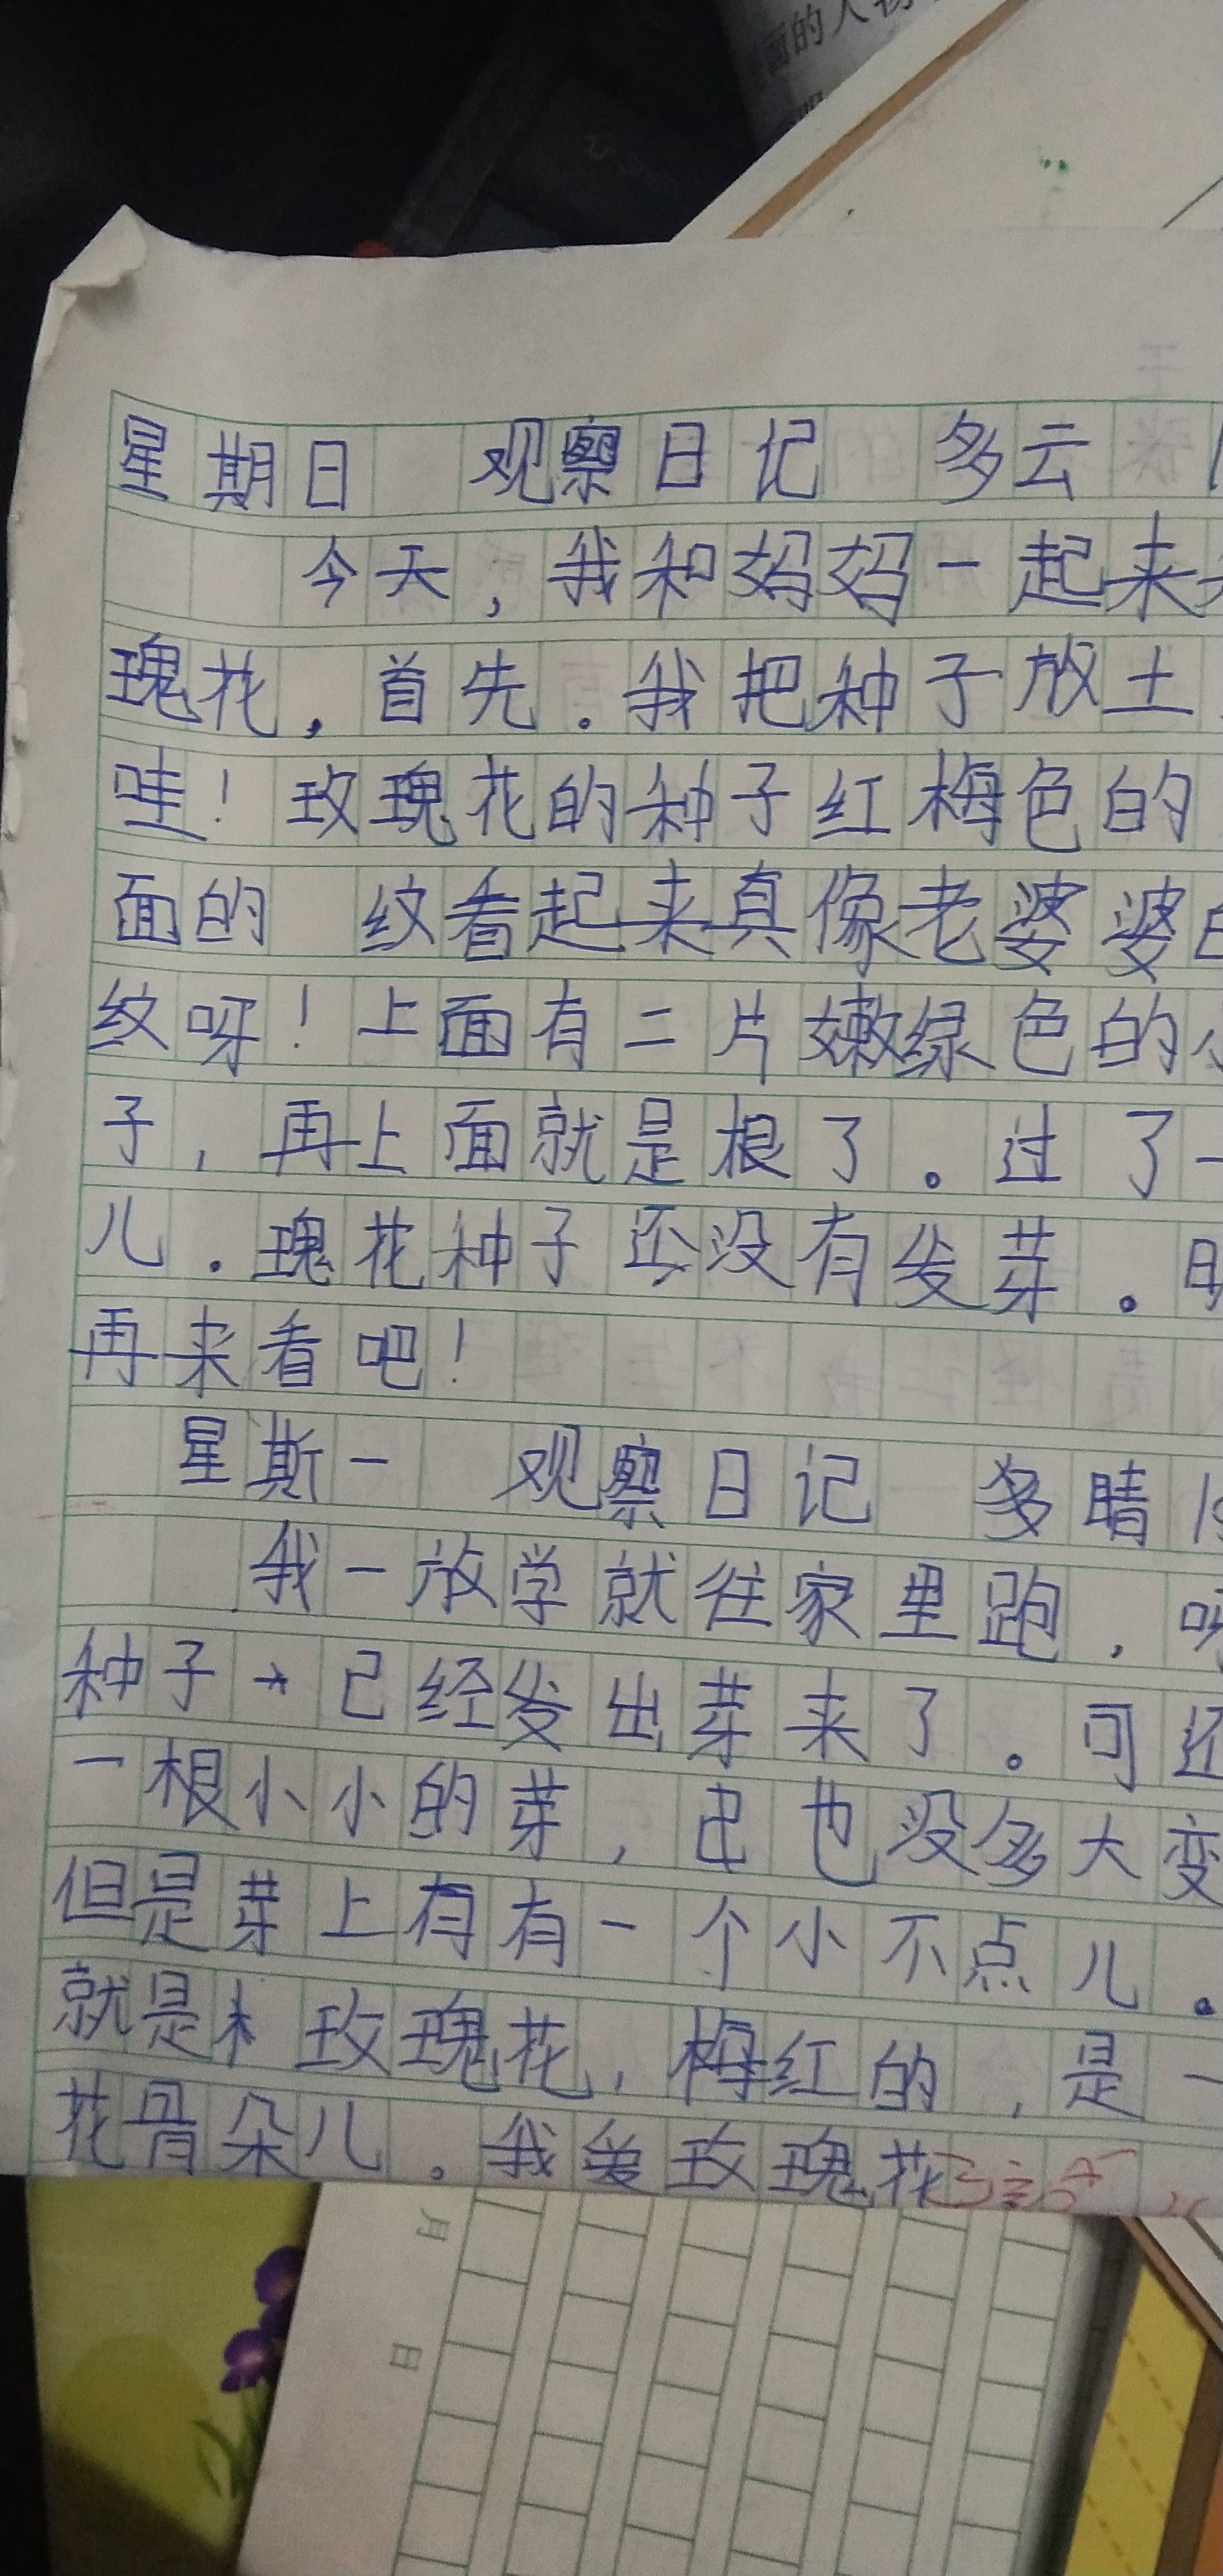 面的人物
星期日 观察日记 多云
今天,我和妈妈一起来
瑰花,首先.我把种子放土
哇!玫瑰花的种子红梅色的
面的 纹看起来真像老婆婆
纹呀!上面有二片嫩绿色的
子,再上面就是根了。过了一
儿.瑰花种子还没有发芽。
再来看吧!
星斯一 观察日记 多晴
我一放学就往家里跑,
种子 已经发出芽来了。可还
一根小小的芽, 也没多大变
但是芽上有有一个小不点儿。
就是 玫瑰花,梅红的,是一
花骨朵儿。我爱玫瑰花
月
日